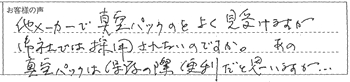 お客様の声
他メーカーで真空パックのをよく見受けますが
御社では採用されないのですか。 あの
真空パックは保存の際便利だと思いますが…